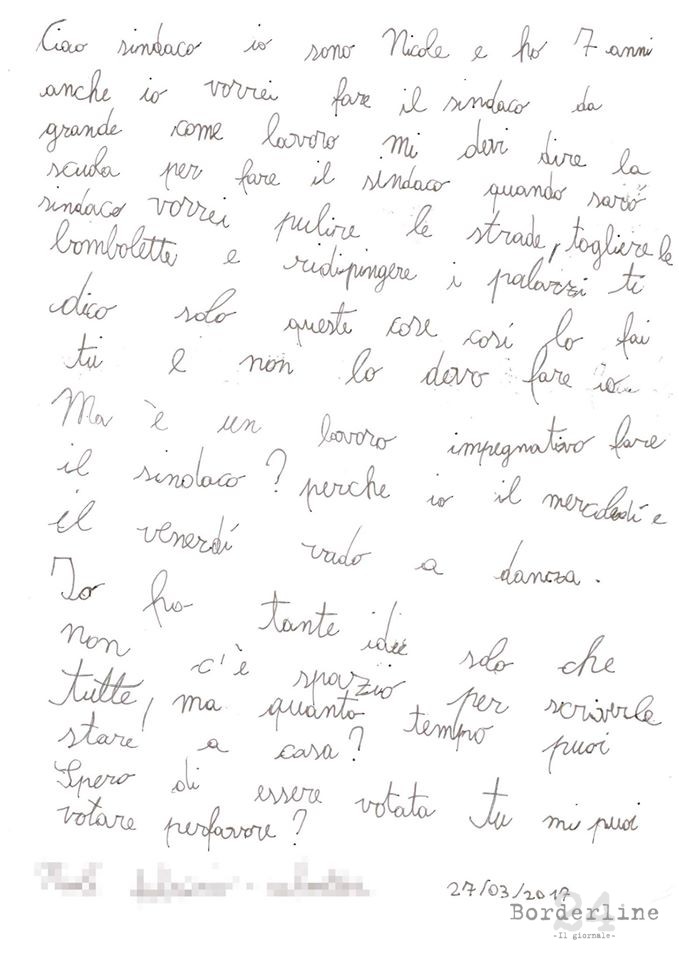 Ciao sindaco io sono Nicole e ho 7 anni
anche io vorrei fare il sindaco da
grande come lavoro mi devi dire la
scuola per fare il sindaco quando sarò
sindaco vorrei pulire le strade, togliere le
bombolette e ridipingere i palazzi ti
dico solo queste cose così lo fai
tu e non lo devo fare io.
Ma è un lavoro impegnativo fare
il sindaco? perche io il mercoledí e
il venerdí vado a dancza.
Io ho tante idee solo che
non c'è spazio per scriverle
tutte, ma quanto tempo puoi
stare a casa?
Spero di essere votata tu mi puoi
votare perfavore?
27/03/2017
24
Borderline
-Il giornale-